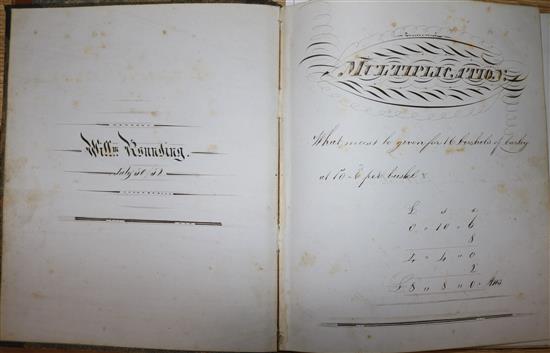 Will^m Rounding.
July 30
MULTIPLICATION.
What must be given for 16 bushels of barley
at 10 - 6 per bushel
£ s d
0 " 10 " 6
8
4 " 4 " 0
2
£ 8 " 8 " 0 Ans